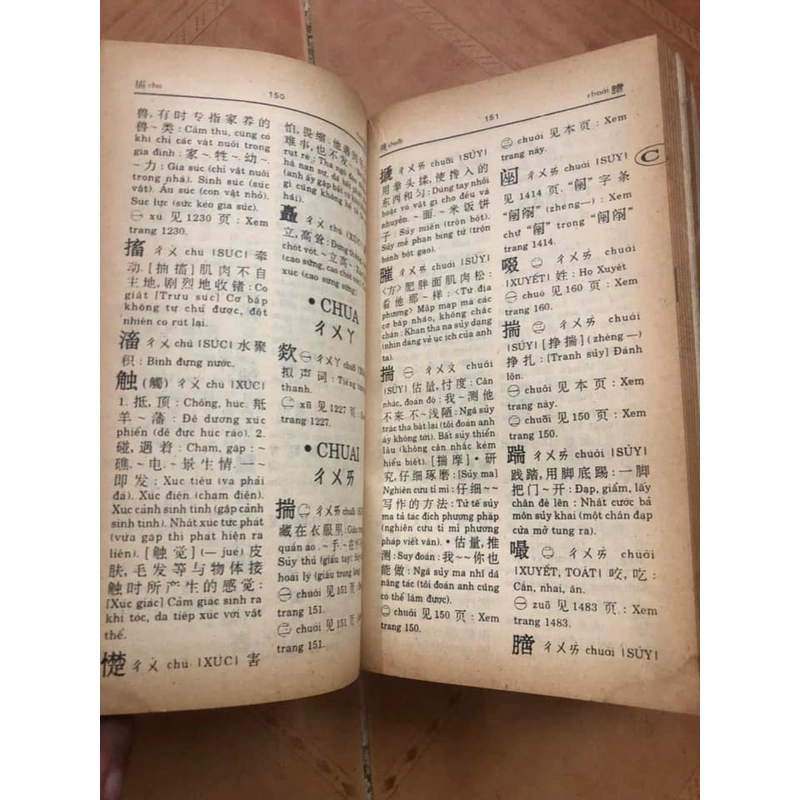 搐 chù
150
兽, 有时专指家养的
兽~类: Cầm thú, cũng có
khi chỉ các vật nuôi trong
gia đình: 家~牲~幼~
~力: Gia súc (chỉ vật nuôi
trong nhà). Sinh súc (súc
vật). Ấu súc (con vật nhỏ).
Súc lực (sức kéo gia súc).
㊀ xù 见 1230 页: Xem
trang 1230.
搐 ㄔㄨ chù [SÚC] 牵
动 [抽搐] 肌肉不自
主地, 剧烈地收缩: Co
giật [Trừu súc] Cơ bắp
không tự chủ được, đột
nhiên co rút lại.
滀 ㄔㄨ chù [SÚC] 水聚
积: Bình đựng nước.
触 (觸) ㄔㄨ chù [XÚC]
1. 抵, 顶: Chống, húc: 羝
羊~藩: Đê dương xúc
phiên (dê đực húc rào). 2.
碰, 遇着: Chạm, gặp: ~
礁. ~电. ~景生情. 一~
即发: Xúc tiêu (va phải
đá). Xúc điện (chạm điện).
Xúc cảnh sinh tình (gặp cảnh
sinh tình). Nhất xúc tức phát
(vừa gặp thì phát hiện ra
liền). [触觉] (— jué) 皮
肤, 毛发等与物体接
触时所产生的感觉:
[Xúc giác] Cảm giác sinh ra
khi tóc, da tiếp xúc với vật
thể.
憷 ㄔㄨ chù [XÚC] 害
怕, 畏缩:
难事, 也不发
rụt rè: Tha ngộ đáo
hà nan sự, dã bất phát
(anh ấy gặp bất
gì cũng không hề
矗 ㄔㄨ chù
立, 高耸: Đứng thẳng
chót vót. ~立
xúc (cao sừng, cao chót
(cao sừng sững).
• CHUA
ㄔㄨㄚ
欻 ㊀ ㄔㄨㄚ chuā
拟声词: Tiếng tượng
thanh.
㊁ xū 见 1227 页: Xem
trang 1227.
• CHUAI
ㄔㄨㄞ
揣 ㊁ ㄔㄨㄞ chuāi
藏在衣服里: Giấu trong
quần áo. ~手. ~在怀
Sủy thủ (giấu tay). Sủy
hoài lý (giấu trong lòng)
㊀ chuǎi 见 151 页:
trang 151.
㊂ chuài 见 151 页:
trang 151.
151
chuài 膪
搋 ㄔㄨㄞ chuāi [SỦY]
用拳头揉, 使搀入的
东西和匀: Dùng tay nhồi
hoặc vò vật gì cho đều và
nhuyễn. ~面. ~米饭饼
子: Sủy miến (trộn bột).
Sủy mễ phạn bính tử (trộn
bánh bột gạo).
膗 ㄔㄨㄞ chuái [SỦY]
〈方〉肥胖面肌肉松:
看他那~样: (Từ địa
phương) Mập mạp mà các
cơ bắp nhão, không chắc
chắn: Khan tha na sủy dạng
(nhìn dáng vẻ ục ịch của anh
ta).
揣 ㊀ ㄔㄨㄞ chuǎi
[SỦY] 估量, 忖度: Cân
nhắc, đoán đó: 我~测他
不来. 不~浅陋: Ngã sủy
trắc tha bất lai (tôi đoán anh
ấy không tới). Bất sủy thiển
lậu (không cân nhắc kém
hiểu biết). [揣摩] • 研
究, 仔细琢磨: [Sủy ma]
Nghiên cứu tỉ mỉ: 仔细~~
写作的方法: Tử tế sủy
ma tả tác đích phương pháp
(nghiên cứu tỉ mỉ phương
pháp viết văn). • 估量, 推
测: Suy đoán: 我~~你也
能做: Ngã sủy ma nhĩ dã
năng tác (tôi đoán anh cũng
có thể làm được).
㊁ chuāi 见 150 页: Xem
trang 150.
㊂ chuài 见本页: Xem
trang này.
㊁ ㄔㄨㄞ chuài [SUY]
见 1414 页. “闹” 字条
chữ
1414.
啜 ㊁ ㄔㄨㄞ chuài
[XUYẾT] 姓: Họ Xuyết
㊀ chuò 见 160 页: Xem
trang 160.
揣 ㊂ ㄔㄨㄞ chuài
[SỦY] [挣揣] (zhèng —)
挣扎: [Tranh sủy] Đánh
lộn.
㊀ chuǎi 见本页: Xem
trang này.
㊁ chuāi 见 150 页: Xem
trang 150.
踹 ㄔㄨㄞ chuài [SỦY]
践踏, 用脚底踢: 一脚
把门~开: Đạp, giẫm, lấy
chân đề lên: Nhất cước bả
môn sủy khai (một chân đạp
cửa mở tung ra).
嘬 ㊁ ㄔㄨㄞ chuài
[XUYẾT, TOÁT] 咬, 吃:
Cắn, nhai, ăn.
㊀ zuō 见 1483 页: Xem
trang 1483.
膪 ㄔㄨㄞ chuài [SỦY]
C